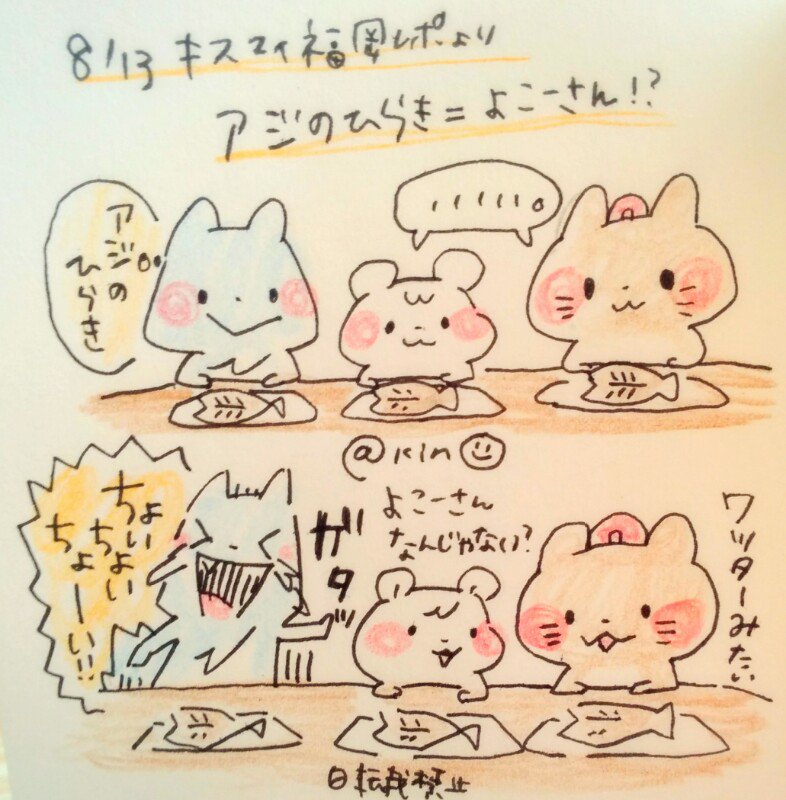 8/13 キスマイ福岡レポより
アジのひらき=よこーさん!?
アジの
ひらき
、、、、、。
@kin
よこーさん
なんじゃない?
ワッターみたい
ガタッ
ちょい
ちょい
ちょーい!!
@転載禁止